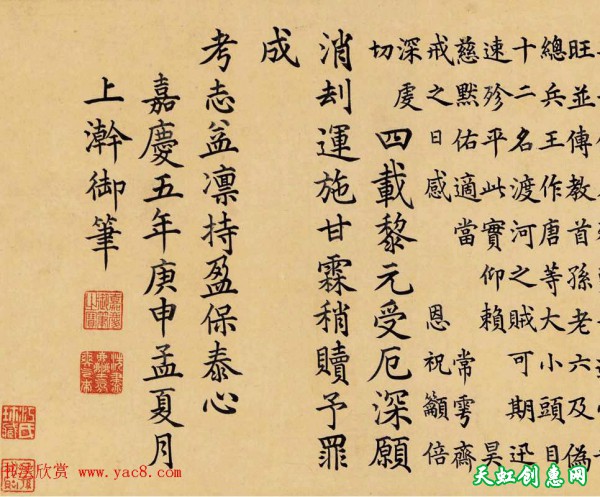 旺並傳教首孫老六及偽
總兵王作唐等大小頭目
十二名渡河之賊可期迅
速殄平此實仰賴 昊
慈默佑適當 常雩齋
戒之日感 恩祝籲倍
深虔
切
四載黎元受厄深願
消刦運施甘霖稍贖予罪
成
考志益凛持盈保泰心
嘉慶五年庚申孟夏月
上澣御筆
书法欣赏 www.yac8.com
天虹创意网